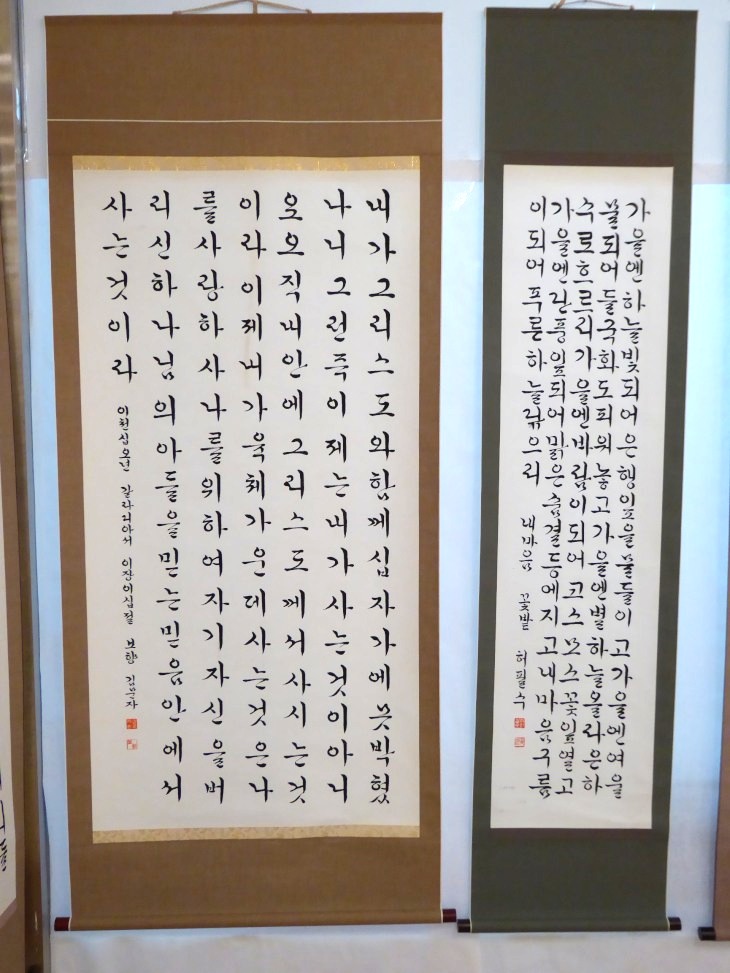 내가그리스도와함께십자가에못박혔
나니그런즉이제는내가사는것이아니
요오직내안에그리스도께서사시는것
이라이제내가육체가운데사는것은나
를사랑하사나를위하여자기자신을버
리신하나님의아들을믿는믿음안에서
사는것이라
이천십오년 갈라디아서 이장이십절 보향 김분자
가을엔하늘빛되어은행잎을물들이고가을엔여울
물되어들국화도피워놓고가을엔별하늘올라은하
수로흐르리가을엔바람이되어코스모스꽃잎열고
가을엔단풍잎되어맑은숨결등에지고내마음구름
이되어푸른하늘닦으리 내마음 꽃밭 허필수